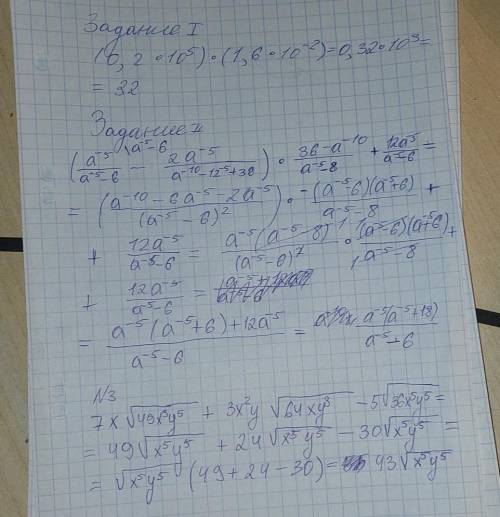 Задание I
(0,2*10⁵)*(1,6*10⁻²)=0,32*10³=
= 32
Задание II
(a⁻⁵/(a⁻⁵-6) - 2a⁻⁵/(a⁻¹⁰-12⁻⁵+36)) * (36-a⁻¹⁰)/(a⁻⁵-8) + 12a⁻⁵/(a⁻⁵-6) =
= ((a⁻¹⁰-6a⁻⁵-2a⁻⁵)/(a⁻⁵-6)²) * -(a⁻⁵-6)(a⁻⁵+6)/(a⁻⁵-8) +
+ 12a⁻⁵/(a⁻⁵-6) = a⁻⁵(a⁻⁵-8)/(a⁻⁵-6)² * (a⁻⁵-6)(a⁻⁵+6)/(a⁻⁵-8) +
+ 12a⁻⁵/(a⁻⁵-6) =
= (a⁻⁵(a⁻⁵+6)+12a⁻⁵)/(a⁻⁵-6) = a⁻⁵(a⁻⁵+18)/(a⁻⁵-6)
N3
7x√(49x³y⁵) + 3x²y√(64xy³) - 5√(36x⁵y⁵) =
= 49√(x⁵y⁵) + 24√(x⁵y⁵) - 30√(x⁵y⁵) =
= √(x⁵y⁵) (49+24-30) = 43√(x⁵y⁵)